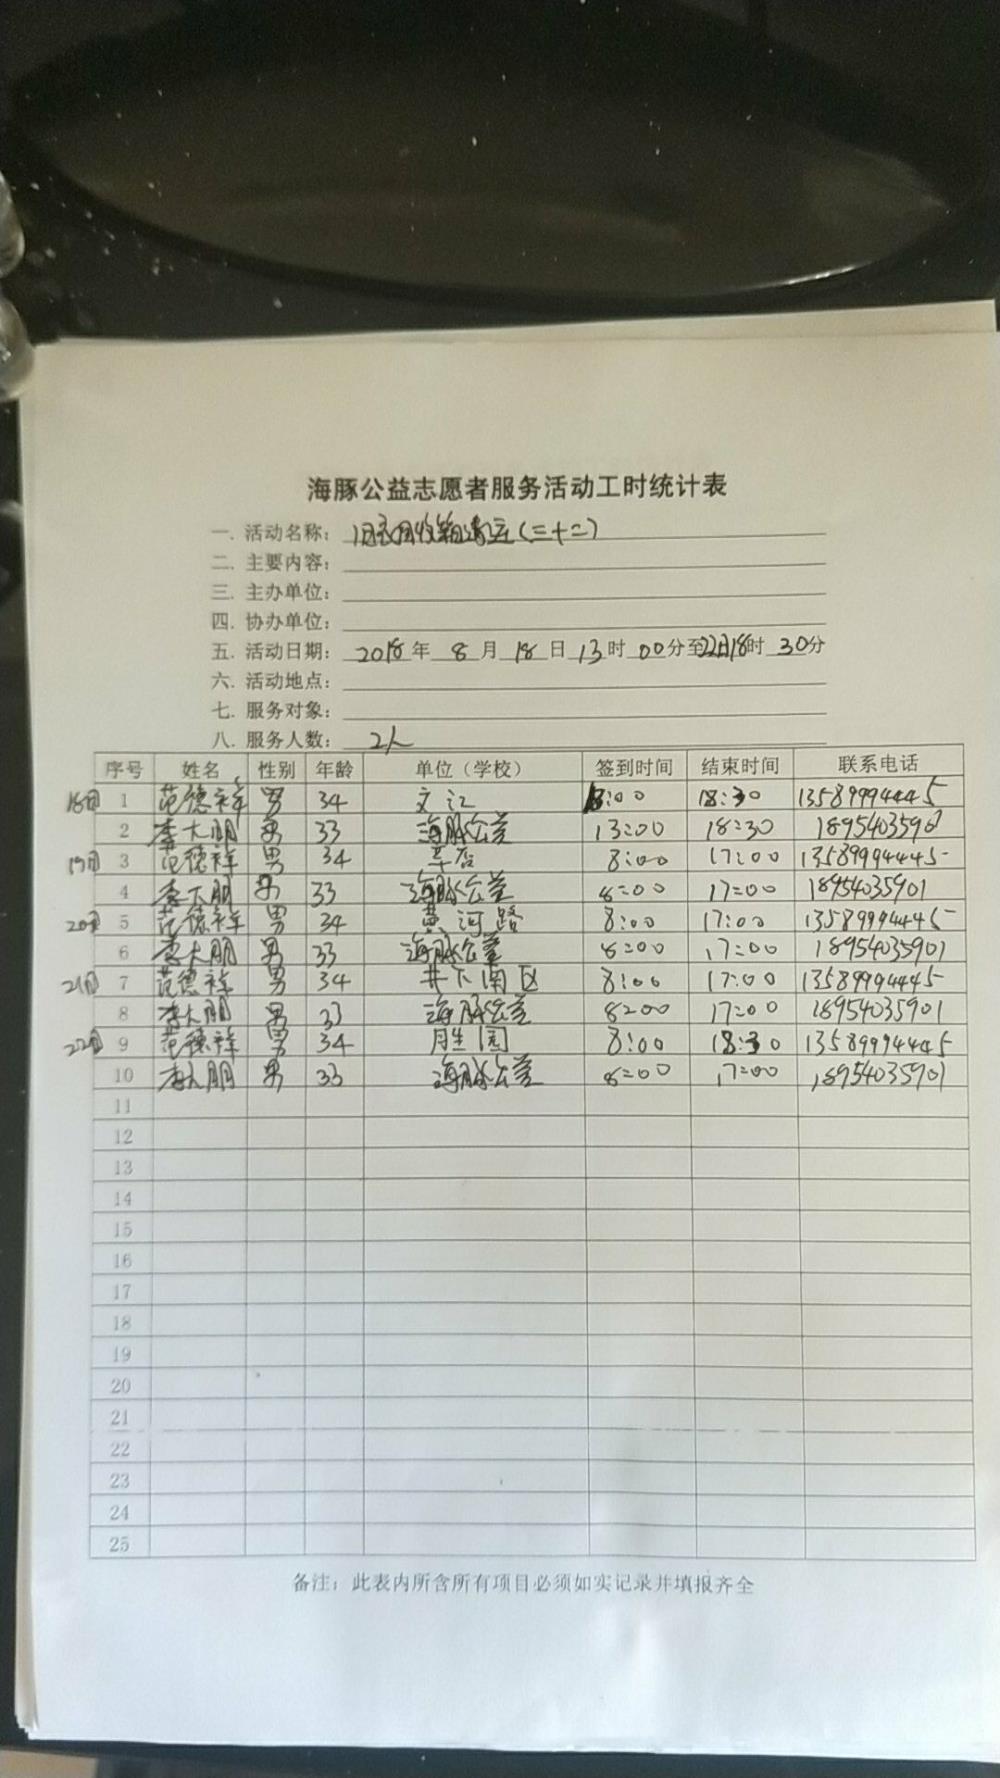 海豚公益志愿者服务活动工时统计表
一. 活动名称: 旧衣回收箱清运(三十二)
二. 主要内容:
三. 主办单位:
四. 协办单位:
五. 活动日期: 2018年 8月 18日 13时 00分至22日18时 30分
六. 活动地点:
七. 服务对象:
八. 服务人数: 2人
序号 姓名 性别 年龄 单位（学校） 签到时间 结束时间 联系电话
18日 1 范德祥 男 34 文汇 13:00 18:30 13589994445
2 李大朋 男 33 海豚公益 13:00 18:30 18954035901
19日 3 范德祥 男 34 辛店 8:00 17:00 13589994445
4 李大朋 男 33 海豚公益 8:00 17:00 18954035901
20日 5 范德祥 男 34 黄河路 8:00 17:00 13589994445
6 李大朋 男 33 海豚公益 8:00 17:00 18954035901
21日 7 范德祥 男 34 井下南区 8:00 17:00 13589994445
8 李大朋 男 33 海豚公益 8:00 17:00 18954035901
22日 9 范德祥 男 34 8:00 18:30 13589994445
10 李大朋 男 33 海豚公益 8:00 17:00 18954035901
11
12
13
14
15
16
17
18
19
20
21
22
23
24
25
备注：此表内所含所有项目必须如实记录并填报齐全